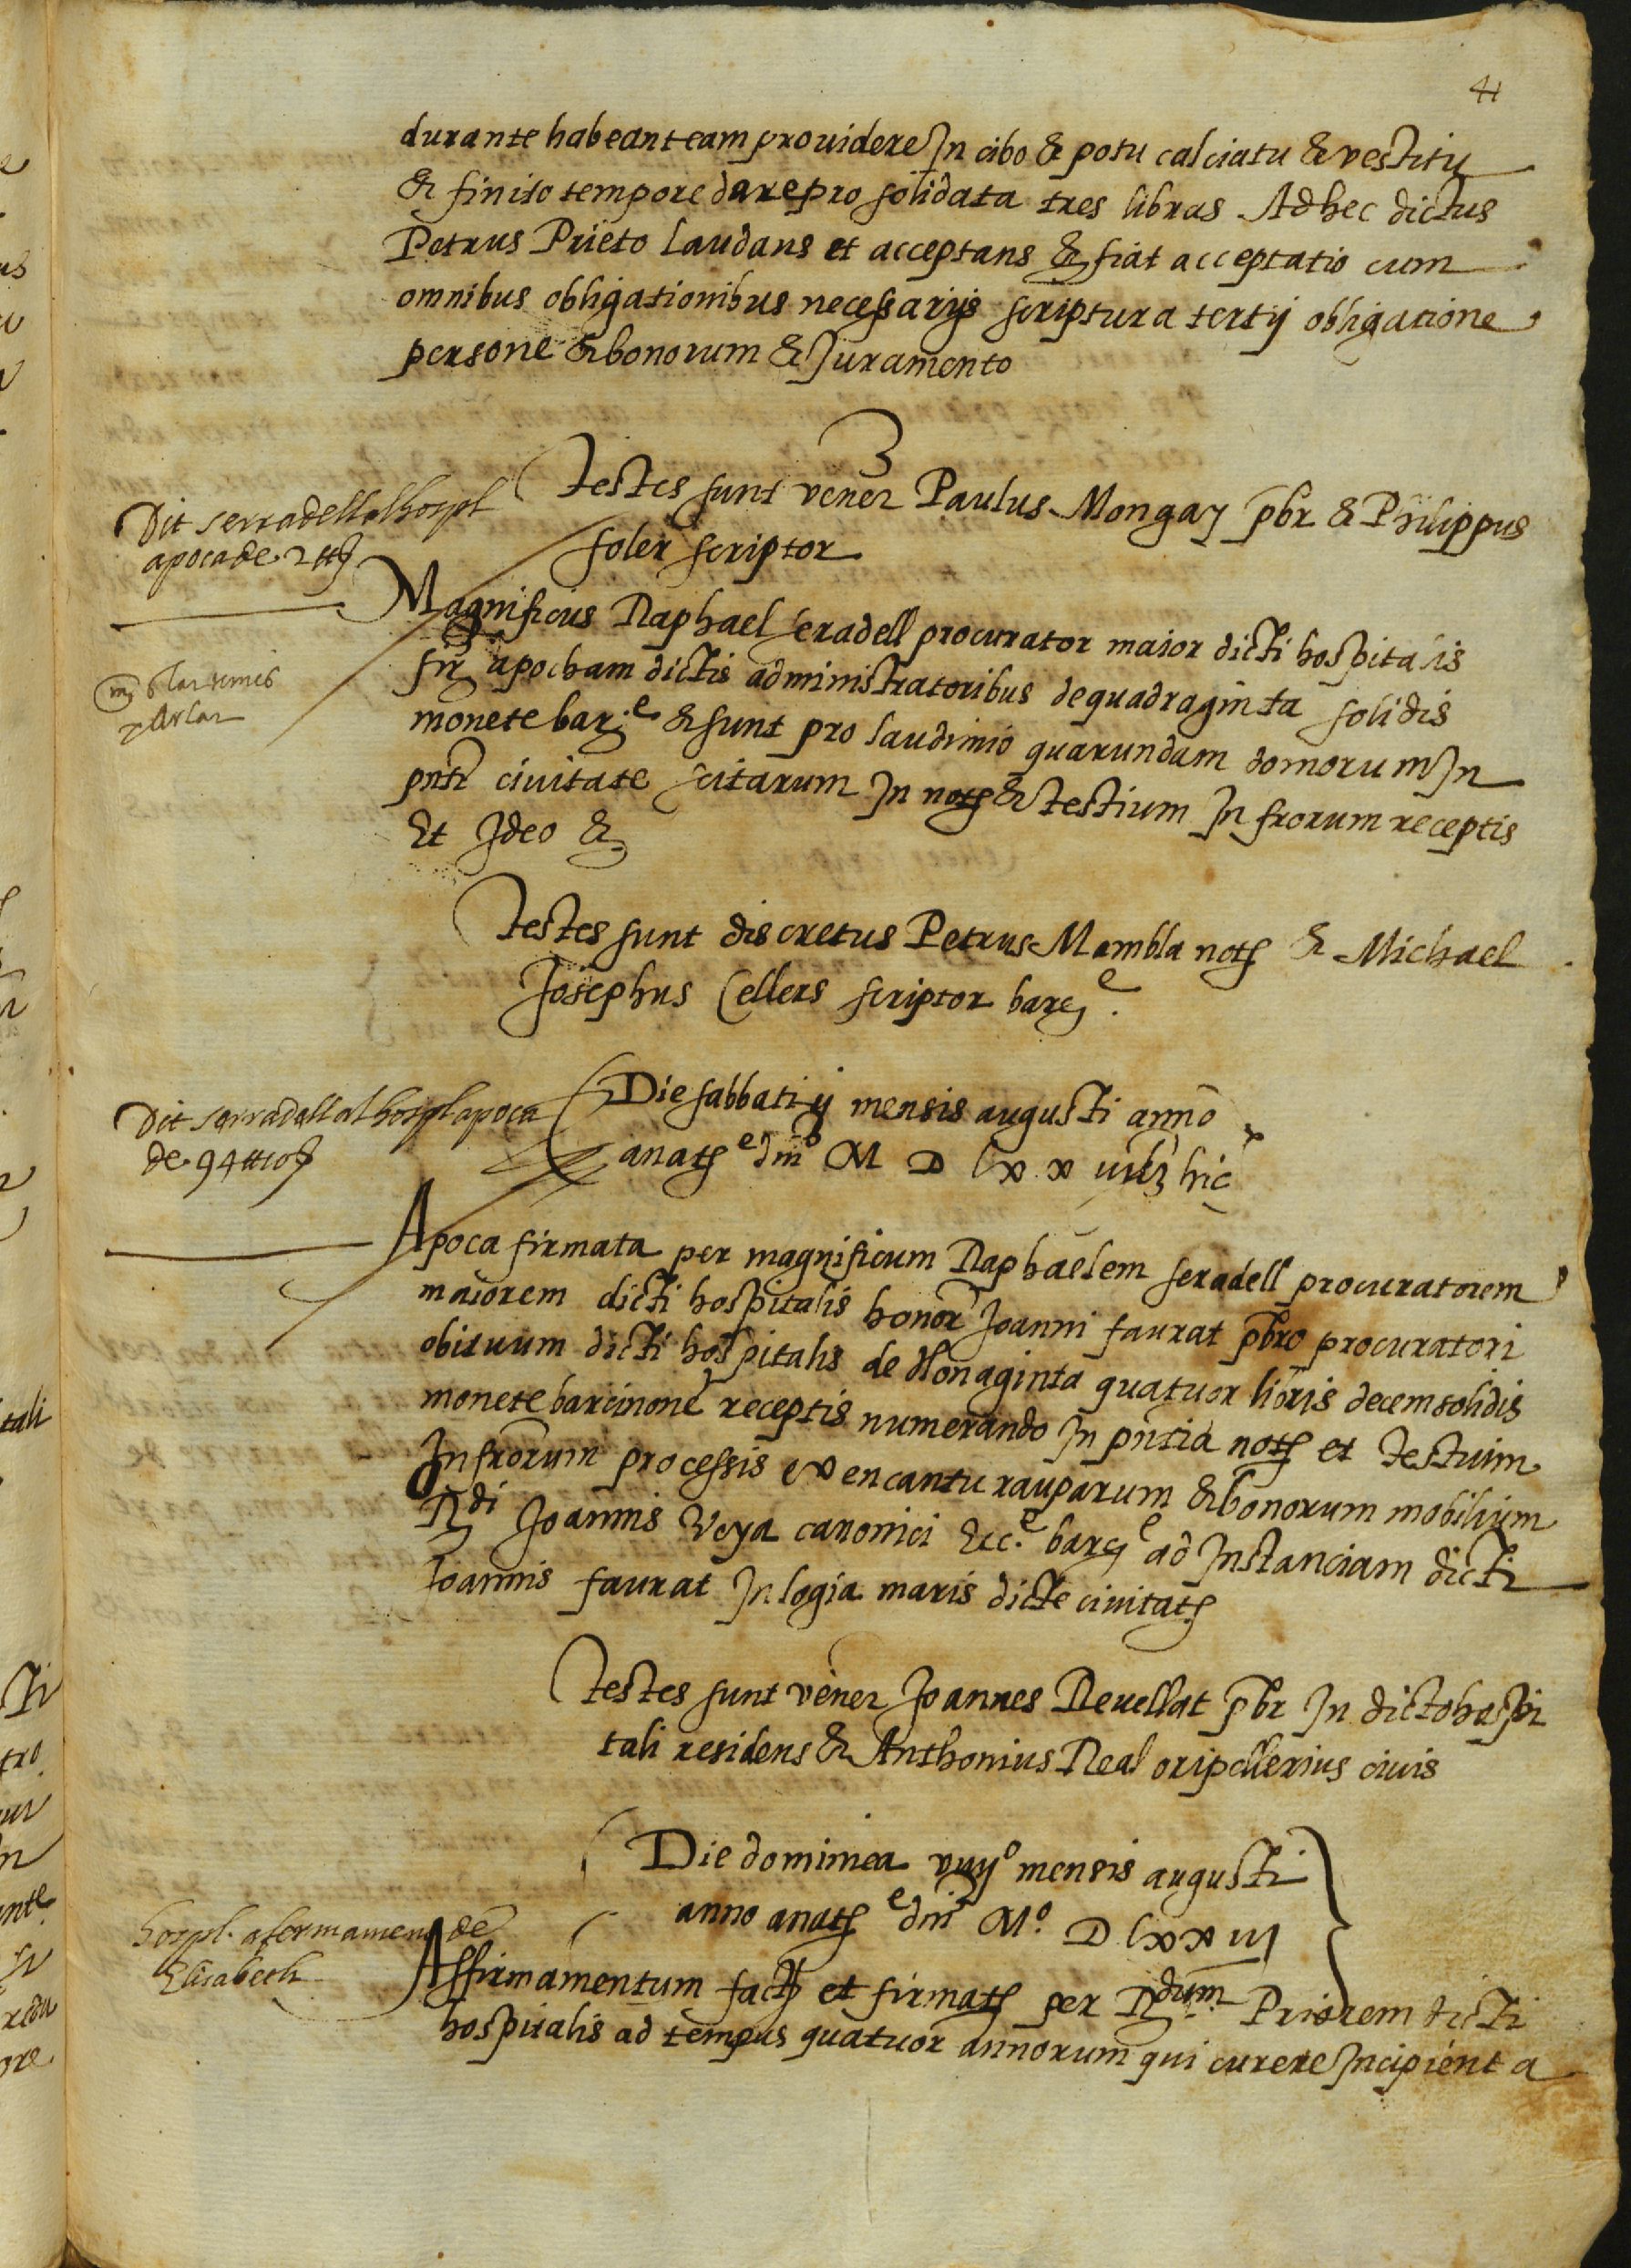 41
durante habeant eam prouidere In cibo & potu calciatu & vestitu
& finito tempore dare pro solidata tres libras Ad hec dictus
Petrus Prieto laudans et acceptans & fiat acceptatio cum
omnibus obligationibus necessarijs scriptura tertij obligatione
persone & bonorum & Juramento
Testes sunt vener Paulus Mongay pbr & Philippus
soler scriptor
Dit serradell al hospl
apoca de 2 ₶
Magnificus Raphael seradell procurator maior dicti hospitalis
fir apocham dictis administratoribus de quadraginta solidis
monete barᵉ & sunt pro laudimio quarundam domorum In
pnti ciuitate scitarum In not & testium Infrorum receptis
Et Ideo &
Testes sunt discretus Petrus Mambla not & Michael
Josephus Cellers scriptor barᵉ.
Dit serradell al hospl apoca
de 94 ₶ 10 ſ
Die sabbati ij mensis augusti anno
a natᵉ dni M D lxx
Apoca firmata per magnificum Raphaelem seradell procuratorem
maiorem dicti hospitalis honor Joanni faurat pbro procuratori
obituum dicti hospitalis de Nonaginta quatuor libris decem solidis
monete barcinone receptis numerando In pntia not et testium
Infrorum processis ex encantu rauparum & bonorum mobilium
Rdi Joannis Veya canonici Ecc.ᵉ barᵉ ad Instanciam dicti
Joannis faurat In logia maris dicte ciuitat
Testes sunt vener Joannes Reuellat pbr In dicto hospi
tali residens & Anthonius Real oripellerius ciuis
Die dominica mensis augusti
anno a natᵉ dni Mº. D lxx iij
hospl. afermament de
Elisabeth
Affirmamentum fact et firmat per Rdum. Priorem dicti
hospitalis ad tempus quatuor annorum qui curere Incipient a